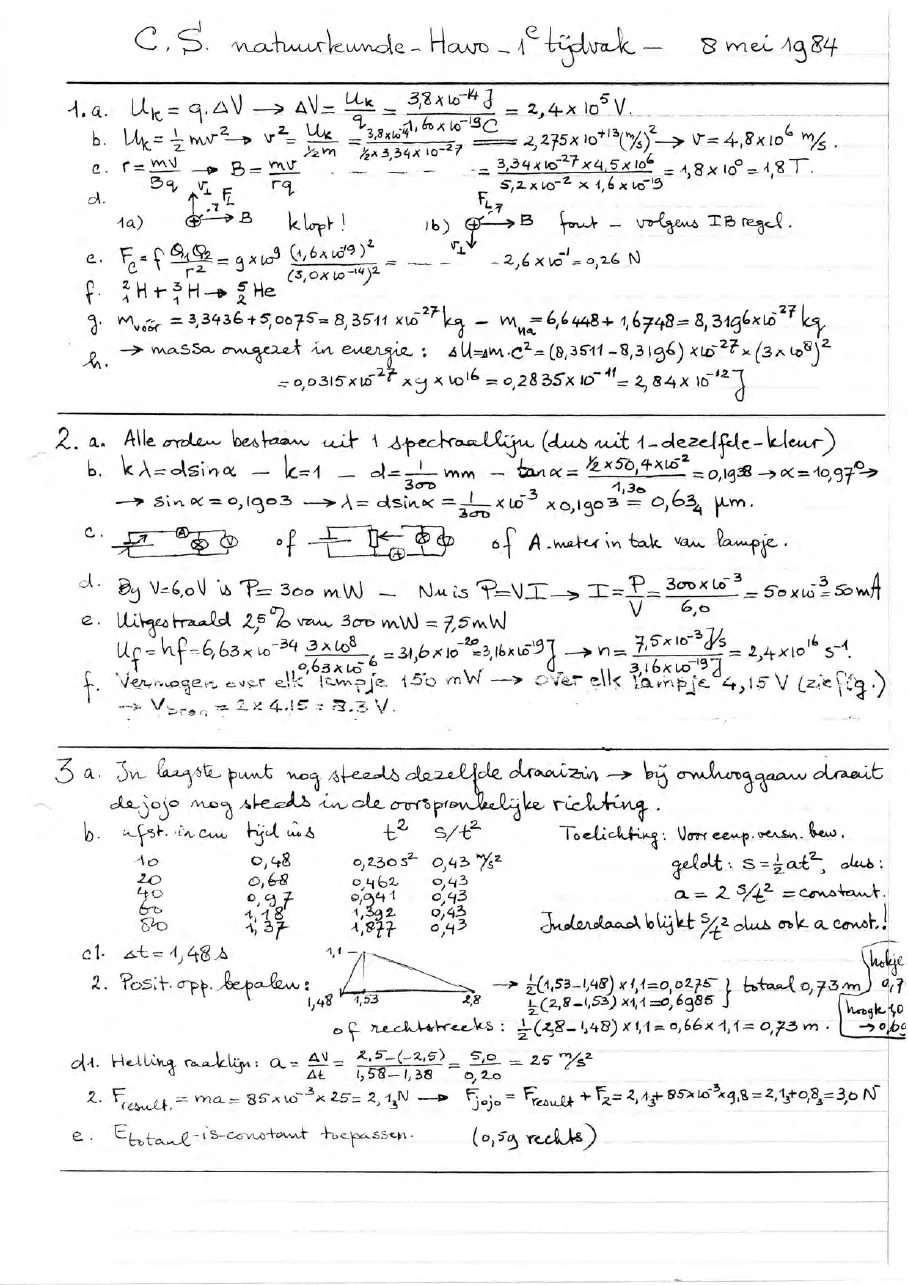 C.S. natuurkunde - Havo - 1e tijdvak - 8 mei 1984
1.a. Uk = q.ΔV → ΔV = Uk/q = 3,8x10^-14 J / 1,60x10^-19 C = 2,4 x 10^5 V.
b. Uk = ½mv² → v² = Uk/½m = 3,8x10^-14 / ½x3,34x10^-27 = 2,275x10^+13 (m/s)² → v = 4,8x10^6 m/s.
c. r = mv/Bq → B = mv/rq - - - - - = 3,34x10^-27 x 4,5x10^6 / 5,2x10^-2 x 1,6x10^-19 = 1,8x10^0 = 1,8 T.
d. 1a) v⊥ FL B klopt! 1b) FL v⊥ B fout - volgens IB regel.
e. Fc = f Q1Q2/r² = 9x10^9 (1,6x10^-19)²/(3,0x10^-14)² = - - - - 2,6x10^-1 = 0,26 N
f. ²₁H + ³₁H → ⁵₂He
g. mvóór = 3,3436 + 5,0075 = 8,3511 x10^-27 kg - mna = 6,6448 + 1,6748 = 8,3196x10^-27 kg
h. → massa omgezet in energie : ΔU = Δm.c² = (8,3511 - 8,3196) x10^-27 x (3x10^8)²
= 0,0315x10^-27 x 9x10^16 = 0,2835x10^-11 = 2,84x10^-12 J
2. a. Alle orden bestaan uit 1 spectraallijn (dus uit 1-dezelfde-kleur)
b. kλ = d sinα - k=1 - d = 1/300 mm - tanα = ½x50,4x10^-2 / 1,30 = 0,1938 → α = 10,97° →
→ sinα = 0,1903 → λ = d sinα = 1/300 x10^-3 x 0,1903 = 0,634 μm.
c. A V of A V of A-meter in tak van lampje.
d. By V=6,0V is P = 300 mW - Nu is P=VI → I = P/V = 300x10^-3 / 6,0 = 50x10^-3 = 50mA
e. Uitgestraald 2,5% van 300 mW = 7,5 mW
Uf = hf = 6,63x10^-34 3x10^8 / 0,63x10^-6 = 31,6x10^-20 = 3,16x10^-19 J → n = 7,5x10^-3 J/s / 3,16x10^-19 J = 2,4x10^16 s^-1.
f. Vermogen over elk lampje 150 mW → over elk lampje 4,15 V (zie fig.)
→ Vbron = 2 x 4.15 = 8.3 V.
3 a. In laagste punt nog steeds dezelfde draaizin → bij omhooggaan draait
de jojo nog steeds in de oorspronkelijke richting.
b. afst. in cm tijd in s t² s/t² Toelichting: Voor eenp. versn. bew.
10 0,48 0,230 s² 0,43 m/s² geldt: s = ½at², dus:
20 0,68 0,462 0,43 a = 2 s/t² = constant.
40 0,97 0,941 0,43
60 1,18 1,392 0,43 Inderdaad blijkt s/t² dus ook a const.!
80 1,37 1,877 0,43
c1. Δt = 1,48 s 1,1 hokje
2. Posit. opp. bepalen: 1,48 1,53 2,8 → ½(1,53-1,48) x1,1 = 0,0275 } totaal 0,73 m 0,7
½(2,8-1,53) x1,1 = 0,6985 hoogte
of rechtstreeks: ½(2,8-1,48) x1,1 = 0,66 x 1,1 = 0,73 m.
d1. Helling raaklijn: a = ΔV/Δt = 2,5-(-2,5) / 1,58-1,38 = 5,0/0,20 = 25 m/s²
2. Fresult. = ma = 85x10^-3 x 25 = 2,13 N → Fjojo = Fresult + Fz = 2,13 + 85x10^-3 x 9,8 = 2,13 + 0,83 = 3,0 N
e. Etotaal-is-constant toepassen. (0,59 rechts)